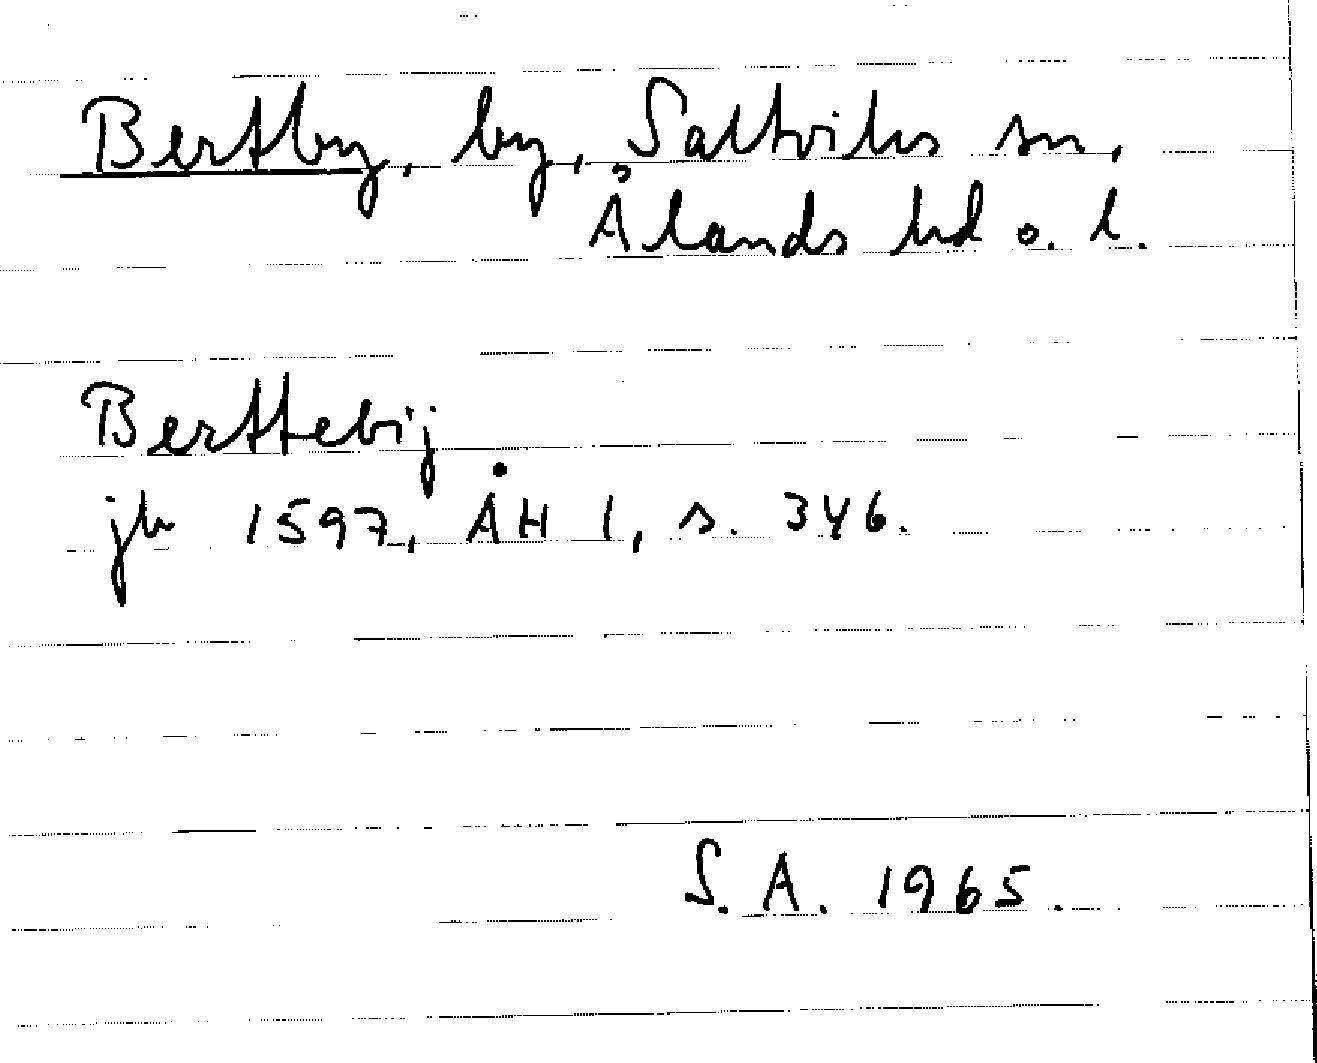 Bertby, by, Saltviks sn,
Ålands hd o. l.
Berttebij
jb 1597, ÅH 1, s. 346.
S. A. 1965.